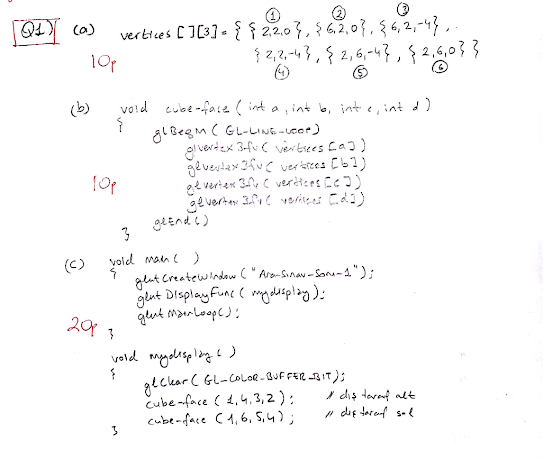 Q1) (a) vertices [ ][3] = { { 2,2,0 }, { 6,2,0 }, { 6,2,-4 }, .
① ② ③
{ 2,2,-4 }, { 2,6,-4 }, { 2,6,0 } }
④ ⑤ ⑥
10p
(b) void cube-face ( int a, int b, int c, int d )
{
glBegin ( GL-LINE-LOOP)
glvertex 3fv ( vertices [a])
glvertex 3fv ( vertices [b])
glvertex 3fv ( vertices [c])
glvertex 3fv ( vertices [d])
10p
glEnd ( )
}
(c) void main ( )
{ glutCreateWindow ( "Ara-Sinav-Soru-1" );
glut DisplayFunc ( mydisplay );
glut MainLoop( );
20p
}
void mydisplay ( )
{
glClear ( GL-COLOR-BUFFER_BIT );
cube-face ( 1,4,3,2 ); // dış taraf alt
cube-face ( 1,6,5,4 ); // dış taraf sol
}